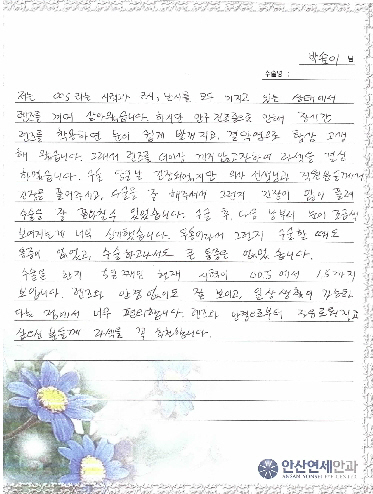 박솔이 님
수술명 :
저는 0.05라는 시력과 근시, 난시를 모두 가지고 있는 상태에서
렌즈를 끼며 살아왔습니다. 하지만 안구건조증으로 인해 장시간
렌즈를 착용하면 눈이 쉽게 빨개지고, 결막염으로 항상 고생
해 왔습니다. 그래서 렌즈를 더이상 끼지 않고자하여 라섹을 결심
하였습니다. 수술 당일날 긴장되었지만 의사 선생님과 직원분들께서
긴장을 풀어주시고, 다음을 잘 해주셔서 그런지 긴장이 많이 풀려
수술을 잘 끝마칠수 있었습니다. 수술 후, 다음 날부터 눈이 조금씩
보여지는게 너무 신기했습니다. 무통이라서 그런지 수술할 때도
통증이 없었고, 수술 하고나서도 큰 통증은 없었습니다.
수술을 한지 되는 현재 시력이 0.05에서 1.5까지
보입니다. 렌즈와 안경 없이도 잘 보이고, 일상생활이 가능하
다는 점에서 너무 편리합니다. 렌즈와 안경으로부터 자유로워지고
싶으신 분들께 라섹을 꼭 추천합니다.
안산연세안과
ANSAN YONSEI EYE CENTER